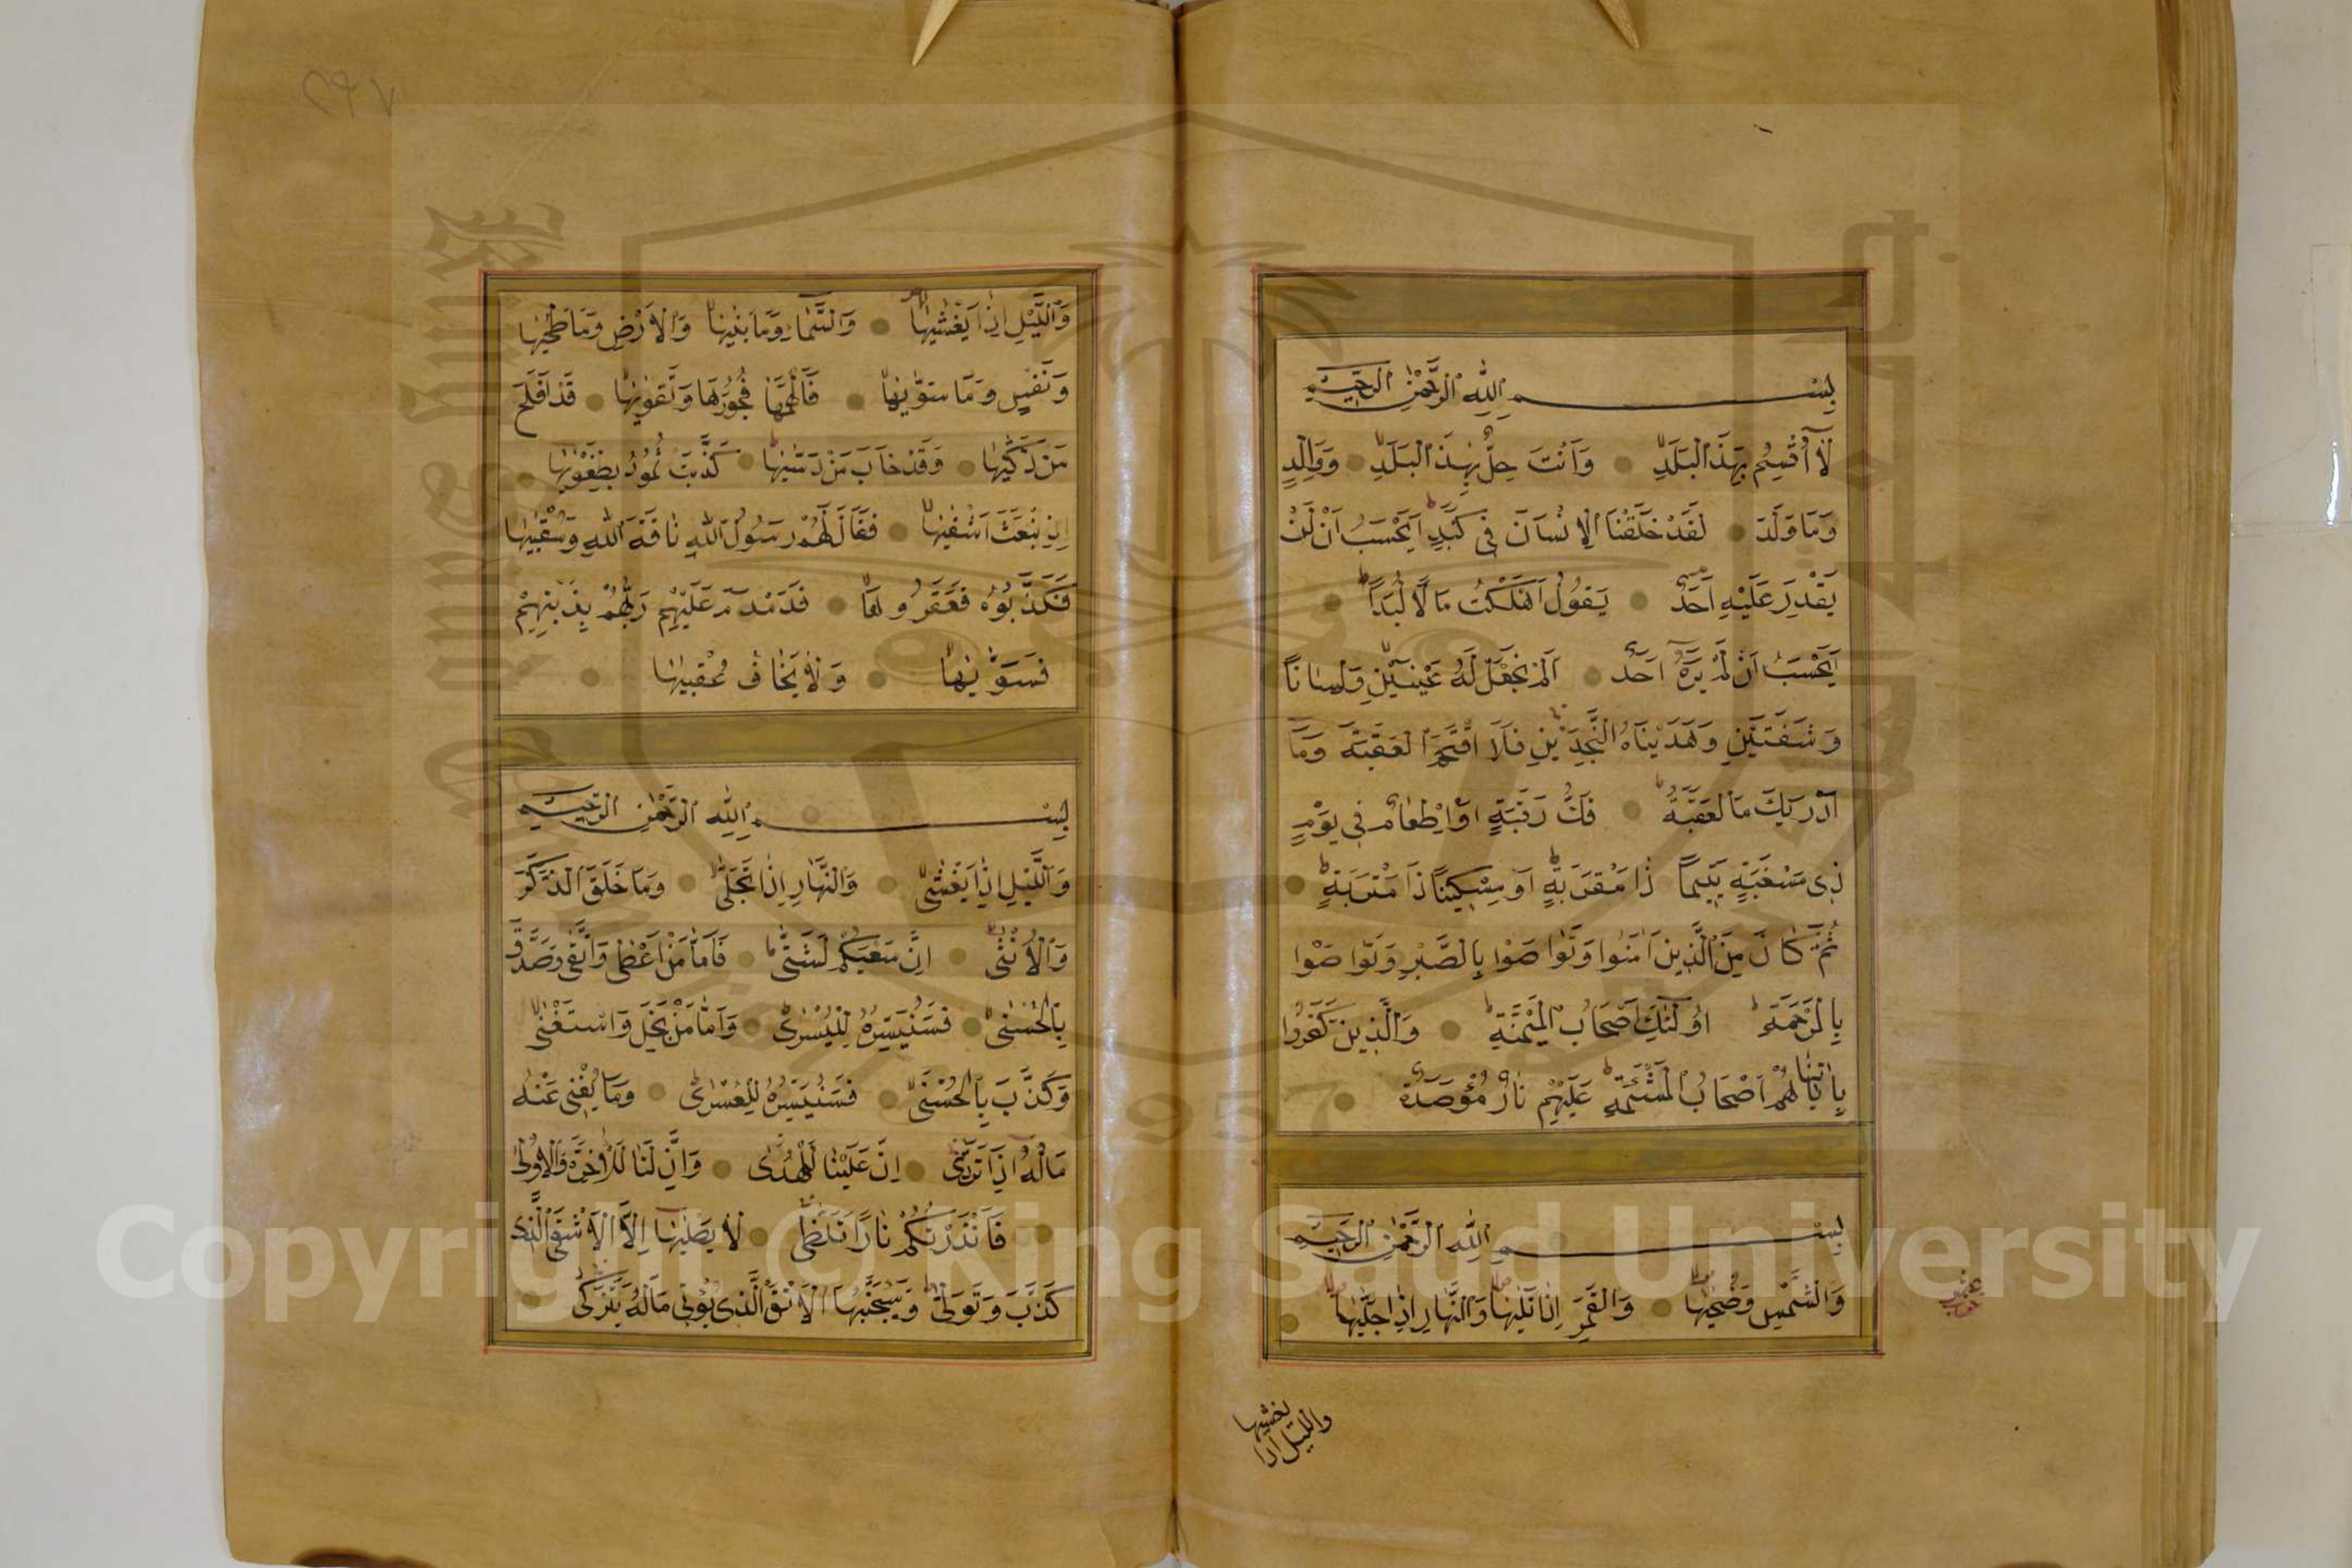 بِسْمِ اللّٰهِ الرَّحْمٰنِ الرَّحِيمِ
لَا أُقْسِمُ بِهَذَا الْبَلَدِ وَأَنْتَ حِلٌّ بِهَذَا الْبَلَدِ وَوَالِدٍ
وَمَا وَلَدَ لَقَدْ خَلَقْنَا الْإِنْسَانَ فِي كَبَدٍ أَيَحْسَبُ أَنْ لَنْ
يَقْدِرَ عَلَيْهِ أَحَدٌ يَقُولُ أَهْلَكْتُ مَالًا لُبَدًا
أَيَحْسَبُ أَنْ لَمْ يَرَهُ أَحَدٌ أَلَمْ نَجْعَلْ لَهُ عَيْنَيْنِ وَلِسَانًا
وَشَفَتَيْنِ وَهَدَيْنَاهُ النَّجْدَيْنِ فَلَا اقْتَحَمَ الْعَقَبَةَ وَمَا
أَدْرَيكَ مَا الْعَقَبَةُ فَكُّ رَقَبَةٍ أَوْ إِطْعَامٌ فِي يَوْمٍ
ذِي مَسْغَبَةٍ يَتِيمًا ذَا مَقْرَبَةٍ أَوْ مِسْكِينًا ذَا مَتْرَبَةٍ
ثُمَّ كَانَ مِنَ الَّذِينَ آمَنُوا وَتَوَاصَوْا بِالصَّبْرِ وَتَوَاصَوْا
بِالْمَرْحَمَةِ أُولَئِكَ أَصْحَابُ الْمَيْمَنَةِ وَالَّذِينَ كَفَرُوا
بِآيَاتِنَا هُمْ أَصْحَابُ الْمَشْئَمَةِ عَلَيْهِمْ نَارٌ مُؤْصَدَةٌ
بِسْمِ اللّٰهِ الرَّحْمٰنِ الرَّحِيمِ
وَالشَّمْسِ وَضُحَيهَا وَالْقَمَرِ إِذَا تَلَيهَا وَالنَّهَارِ إِذَا جَلَّيهَا
والليل اذا
يغشيها
وَاللَّيْلِ إِذَا يَغْشَيهَا وَالسَّمَاءِ وَمَا بَنَيهَا وَالْأَرْضِ وَمَا طَحَيهَا
وَنَفْسٍ وَمَا سَوَّيهَا فَأَلْهَمَهَا فُجُورَهَا وَتَقْوَيهَا قَدْ أَفْلَحَ
مَنْ زَكَّيهَا وَقَدْ خَابَ مَنْ دَسَّيهَا كَذَّبَتْ ثَمُودُ بِطَغْوَيهَا
إِذِ انْبَعَثَ أَشْقَيهَا فَقَالَ لَهُمْ رَسُولُ اللّٰهِ نَاقَةَ اللّٰهِ وَسُقْيَيهَا
فَكَذَّبُوهُ فَعَقَرُوهَا فَدَمْدَمَ عَلَيْهِمْ رَبُّهُمْ بِذَنْبِهِمْ
فَسَوَّيهَا وَلَا يَخَافُ عُقْبَيهَا
بِسْمِ اللّٰهِ الرَّحْمٰنِ الرَّحِيمِ
وَاللَّيْلِ إِذَا يَغْشَى وَالنَّهَارِ إِذَا تَجَلَّى وَمَا خَلَقَ الذَّكَرَ
وَالْأُنْثَى إِنَّ سَعْيَكُمْ لَشَتَّى فَأَمَّا مَنْ أَعْطَى وَاتَّقَى وَصَدَّقَ
بِالْحُسْنَى فَسَنُيَسِّرُهُ لِلْيُسْرَى وَأَمَّا مَنْ بَخِلَ وَاسْتَغْنَى
وَكَذَّبَ بِالْحُسْنَى فَسَنُيَسِّرُهُ لِلْعُسْرَى وَمَا يُغْنِي عَنْهُ
مَالُهُ إِذَا تَرَدَّى إِنَّ عَلَيْنَا لَلْهُدَى وَإِنَّ لَنَا لَلْآخِرَةَ وَالْأُولَى
فَأَنْذَرْتُكُمْ نَارًا تَلَظَّى لَا يَصْلَيهَا إِلَّا الْأَشْقَى الَّذِي
كَذَّبَ وَتَوَلَّى وَسَيُجَنَّبُهَا الْأَتْقَى الَّذِي يُؤْتِي مَالَهُ يَتَزَكَّى
Copyright © King Saud University
1957